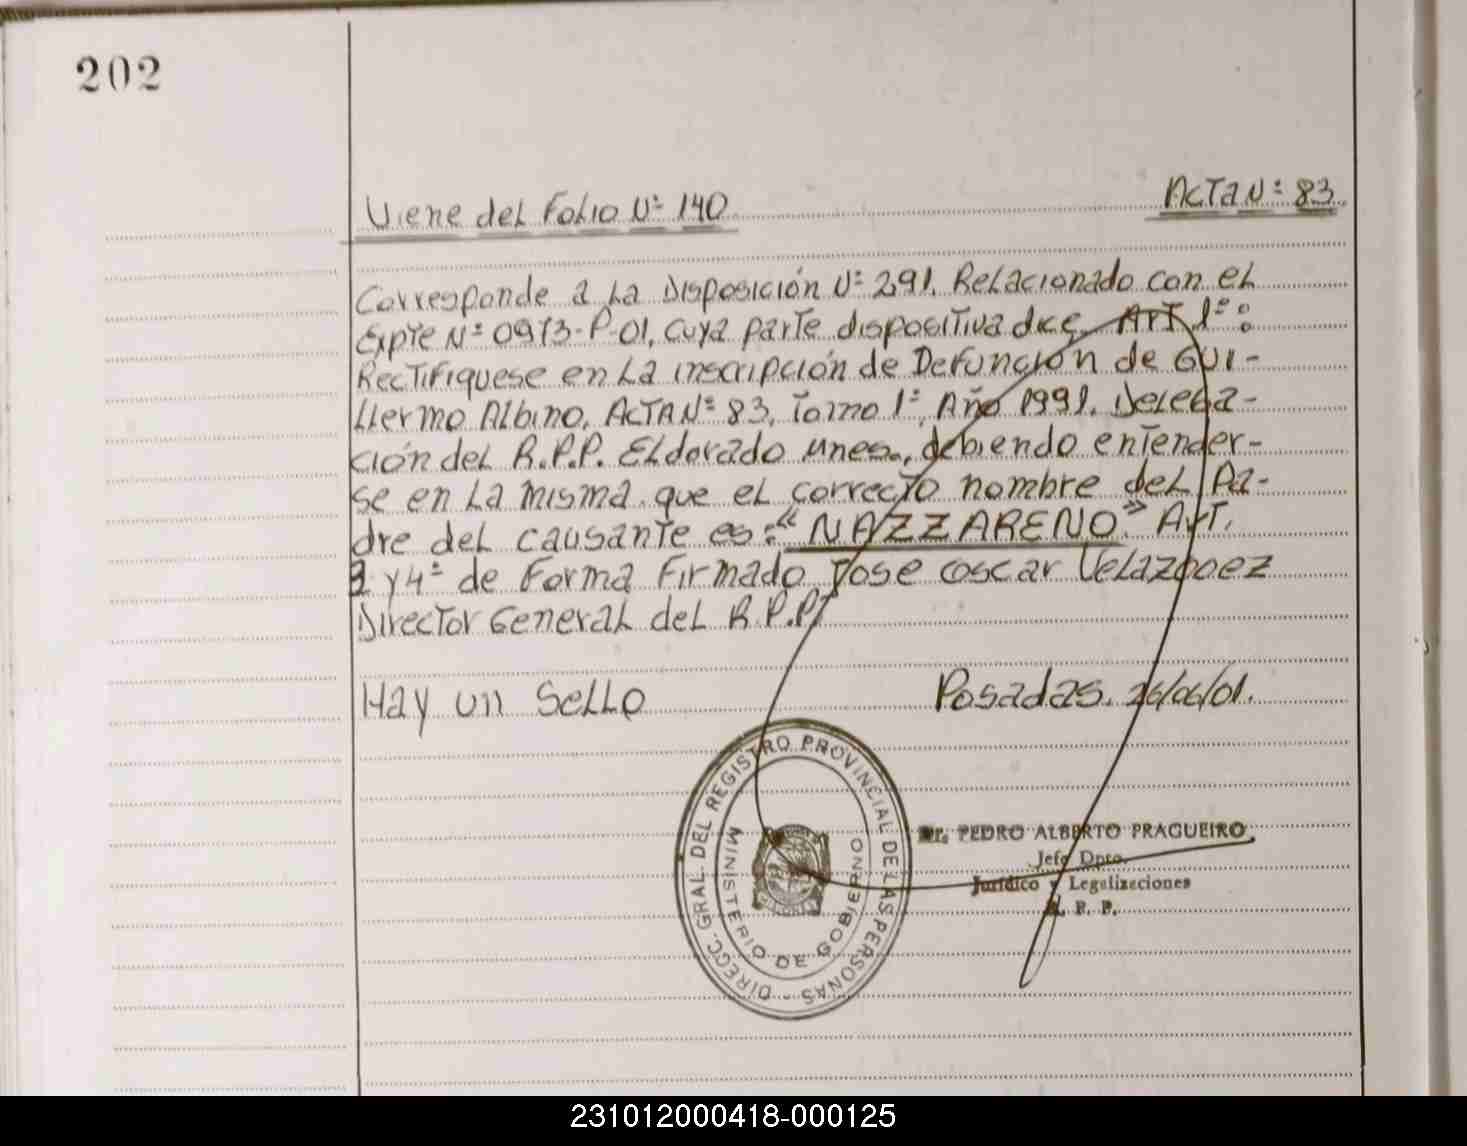 202
Viene del Folio Nº 140
Acta Nº 83
Corresponde a la Disposición Nº 291. Relacionado con el
Expte Nº 0973-P-01, cuya parte dispositiva dice, Art 1º:
Rectifiquese en la inscripción de Defunción de Gui-
llermo Albino, Acta Nº 83, Tomo 1º, Año 1991. Delega-
ción del R.P.P. Eldorado Mnes., debiendo entender-
se en la misma que el correcto nombre del Pa-
dre del causante es: "NAZZARENO" Art.
3 y 4º de Forma Firmado Jose Oscar Velazquez
Director General del R.P.P.
Hay un Sello
Posadas. 26/06/01.
DIRECC. GRAL. DEL REGISTRO PROVINCIAL DE LAS PERSONAS
MINISTERIO DE GOBIERNO
Dr. PEDRO ALBERTO PRAGUEIRO
Jefe Dpto.
Jurídico y Legalizaciones
R. P. P.
231012000418-000125